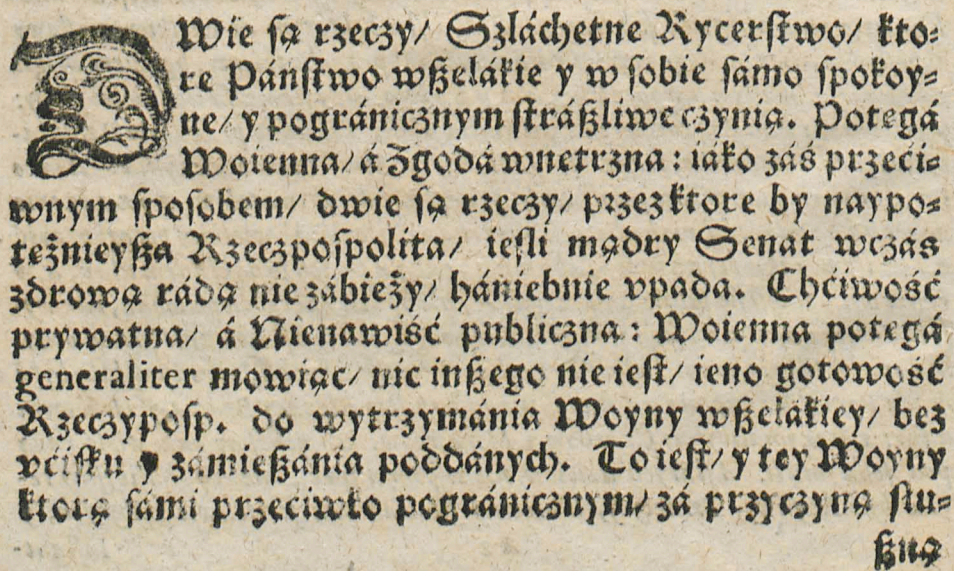 DWie są rzeczy/ Szláchetne Rycerstwo/ kto-
re Páństwo wszelákie y w sobie sámo spokoy-
ne/ y pogránicznym strászliwe czynią. Potegá
Woienna/ á Zgodá wnetrzna: iáko záś przeći-
wnym sposobem/ dwie są rzeczy/ przez ktore by naypo-
teżnieysza Rzeczpospolita/ iesli mądry Senat wczás
zdrową rádą nie zábieży/ hániebnie vpada. Chćiwość
prywatna/ á Nienawiść publiczna: Woienna potegá
generaliter mowiąc/ nic inszego nie iest/ ieno gotowość
Rzeczyposp. do wytrzymánia Woyny wszelákiey/ bez
vćisku y zámieszánia poddánych. To iest/ y tey Woyny
ktorą sámi przećiwko pogránicznym/ zá przyczyną słu-
szną